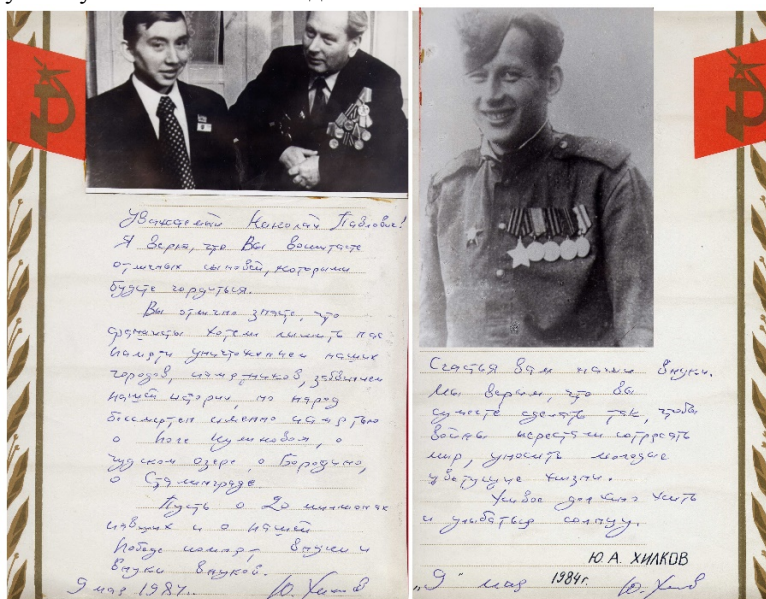 Уважаемый Николай Павлович!
Я верю, что Вы воспитаете
отличных сыновей, которыми
будете гордиться.
Вы отлично знаете, что
фашисты хотели лишить нас
памяти уничтожением наших
городов, памятников, забвением
нашей истории, но народ
бессмертен именно памятью
о поле Куликовом, о
Чудском озере, о Бородино,
о Сталинграде.
Пусть о 20 миллионах
павших и о нашей
Победе помнят внуки и
внуки внуков.
9 мая 1984г. Ю. Хилков
Счастья вам наши внуки.
Мы верим, что вы
сумеете сделать так, чтобы
войны перестали сотрясать
мир, уносить молодые
цветущие жизни.
Живое должно жить
и улыбаться солнцу.
Ю.А. ХИЛКОВ
"9" мая 1984г. Ю. Хилков